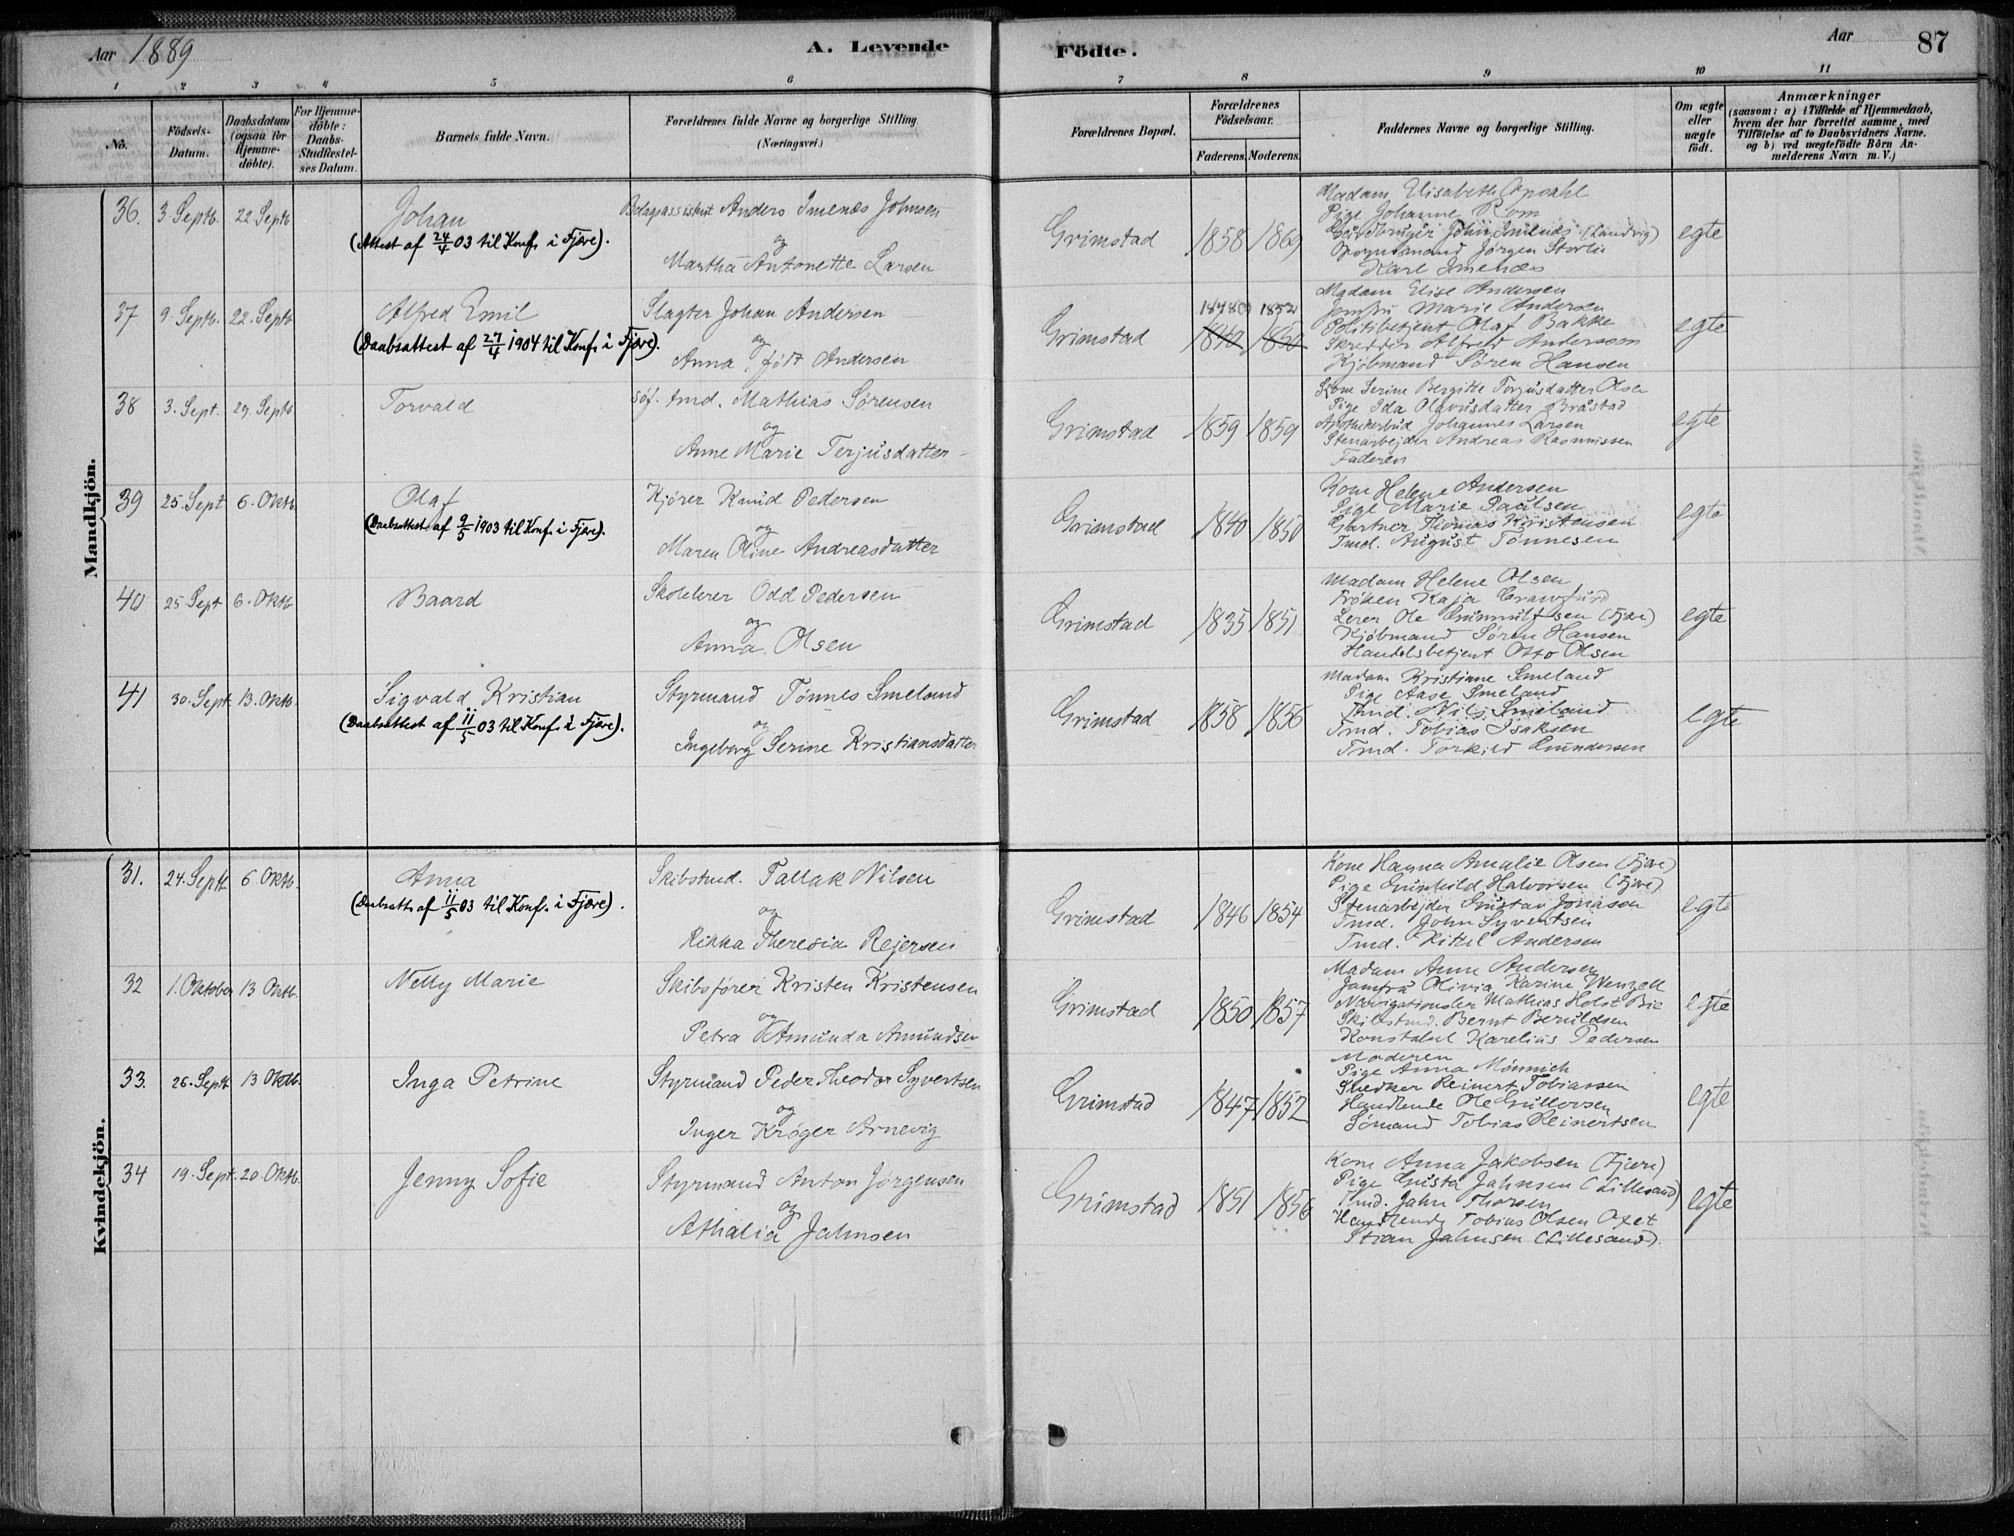 Aar 1889
A. Levende
Fødte.
Aar
87
1 2 3 4 5 6 7 8 9 10 11
No.
Fødsels-Datum.
Daabsdatum (ogsaa for Hjemme-døbte).
For Hjemme-døbte: Daabs-Stadfæstel-ses Datum.
Barnets fulde Navn.
Forældrenes fulde Navne og borgerlige Stilling. (Næringsvei.)
Forældrenes Bopæl.
Forældrenes Fødselsaar.
Faderens. Moderens.
Faddernes Navne og borgerlige Stilling.
Om ægte eller uægte født.
Anmærkninger
(saasom: a) i Tilfælde af Hjemmedaab, hvem der har forrettet samme, med Tilføielse af to Daabsvidners Navne. og b) ved uægtefødte Børn An-melderens Navn m. V.)
Mandkjön.
36. 3 Septb. 22 Septb
Johan
(Attest af 24/4 03 til Konf. i Fjære).
Anders Imenæs Johnsen
og
Martha Antonette Larsen
Grimstad 1858 1869
Madam Elisabeth
Pige Johanne Rom
Gårdbruger John Imenæs (Landvig)
Jørgen Storlie
Karl Imenæs
egte
37 9. Septb. 22. Septb
Alfred Emil
(Daabsattest af 27/4 1904 til Konf. i Fjære).
Slagter Johan Andersen
og
Anna, født Andersen
Grimstad 1848 1852
1840 1850
Madam Elise Andersen
Jomfru Marie Andersen
Politibetjent Olaf Bakke
Skredder Alfred Anderssen
Kjøbmand Søren Hansen
egte
38 3. Sept. 29. Septb
Torvald
Søf. tmd. Mathias Sörensen
og
Anne Marie Terjusdatter
Grimstad 1859 1859
Kone Serine Bergitte Torjusdatter Olsen
Pige Ida Olavusdatter Bråstad
Apothekerbud Johannes Larsen
Stenarbejder Andreas Rasmussen
Faderen
egte
39 25. Sept 6. Oktb.
Olaf
(Daabsattest af 9/5 1903 til Konf. i Fjære).
Kjører Knud Pedersen
og
Maren Oline Andreasdatter
Grimstad 1840 1850
Kone Helene Andersen
Pige Marie Paulsen
Gartner Thomas Kristensen
Tmd. August Tønnesen
egte
40 25 Sept 6. Oktb
Baard
Skolelerer Odd Pedersen
og
Anna Olsen
Grimstad 1835 1851
Madam Helene Olsen
Frøken Kaja Crawfurd
Lerer Ole Gunnulfsen (Fjære)
Kjøbmand Søren Hansen
Handelsbetjent Otto Olsen
egte
41 30. Sept. 13. Oktb.
Sigvald Kristian
(Daabsattest af 11/5 03 til Konf. i Fjære).
Styrmand Tønnes Smeland
og
Ingeborg Serine Kristiansdatter
Grimstad 1858 1856
Madam Kristiane Smeland
Pige Aase Smeland
Tmd. Nils Smeland
Tmd. Tobias Isaksen
Tmd. Torkild Gundersen
egte
Kvindekjön.
31. 24. Septb. 6 Oktb.
Anna
(Daabsatt. af 11/5 03 til Konf. i Fjære).
Skibstmd. Tallak Nilsen
og
Rikka Theresia Rejersen
Grimstad 1846 1854
Kone Hanna Amalie Olsen (Fjære)
Pige Gunhild Halvorsen (Fjære)
Stenarbejder Gustav Jonason
Tmd. John Syvertsen
Tmd. Kittil Andersen
egte
32 1. Oktober 13 Oktb.
Nelly Marie
Skibsfører Kristen Kristensen
og
Petra Amunda Amundsen
Grimstad 1850 1857
Madam Anne Andersen
Jomfru Olivia Karine Wenzell
Navigationsler Mathias Holst Bie
Skibstmd. Bernt Beruldsen
Konstabel Karelius Pedersen
egte
33. 26. Septb. 13 Oktb.
Inga Petrine
Styrmand Peder Theodor Syvertsen
og
Inger Krøger Arnevig
Grimstad 1847 1852
Moderen
Pige Anna Mönnich
Snedker Reinert Tobiassen
Handlende Ole Gullovsen
Sömand Tobias Reinertsen
egte
34 19. Sept. 20 Oktb.
Jenny Sofie
Styrmand Anton Jørgensen
og
Athalia Jahnsen
Grimstad 1851 1856
Kone Anna Jakobsen (Fjære)
Pige Gusta Jahnsen (Lillesand)
Tmd. Jahn Thorsen
Handlende Tobias Olsen Oxet
Stian Jahnsen (Lillesand).
egte